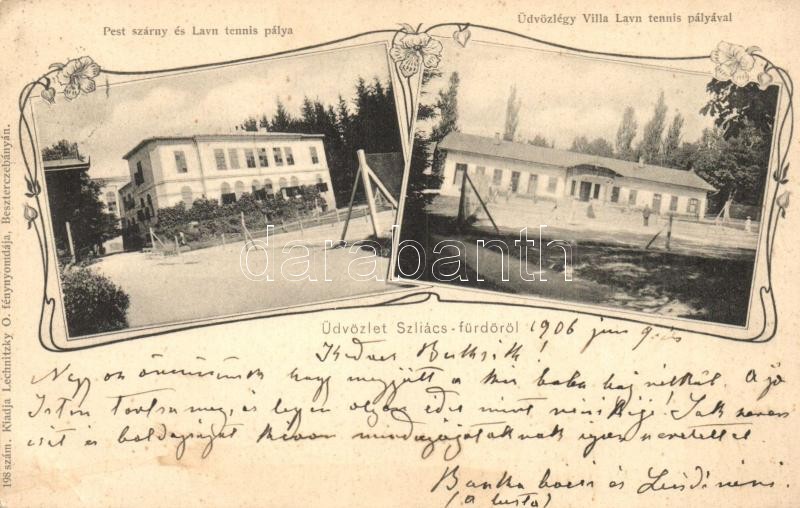 Pest szárny és Lavn tennis pálya
Üdvözlégy Villa Lavn tennis pályával
198 szám. Kiadja Lechnitzky O. fénynyomdája, Beszterczebányán.
darabanth
Üdvözlet Szliács-fürdőről 1906
Kedves
Nagy hogy megjött a kis baba baj nélkül. A jó
Isten tartsa meg, és legyen olyan édes mint
és boldogságot kíván mindnyájatoknak igaz szeretettel
bácsi és néni